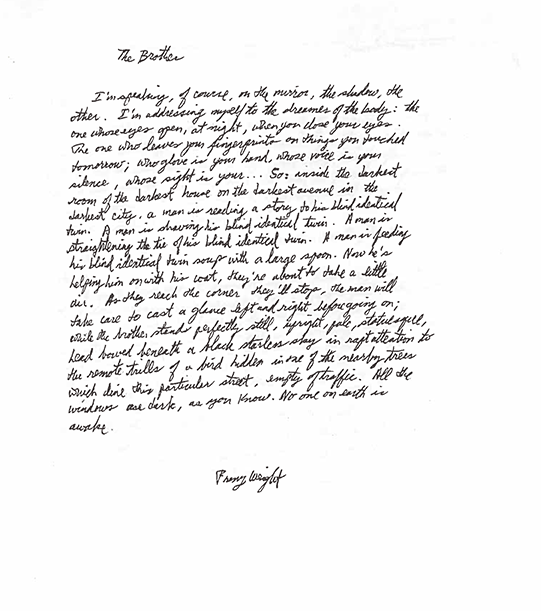 The Brother
I'm speaking, of course, on the mirror, the shadow, the
other. I'm addressing myself to the dreamer of the body: the
one whose eyes open, at night, when you close your eyes.
The one who leaves your fingerprints on things you touched
tomorrow; who glove is your hand, whose voice is your
silence, whose sight is your... So: inside the darkest
room of the darkest house on the darkest avenue in the
darkest city, a man is reading a story to his blind identical
twin. A man is shaving his blind identical twin. A man is
straightening the tie of his blind identical twin. A man is feeding
his blind identical twin soup with a large spoon. Now he's
helping him on with his coat, they're about to take a little
air. As they reach the corner they'll stop, the man will
take care to cast a glance left and right before going on;
while the brother stands perfectly still, upright, pale, statuesque,
head bowed beneath a black starless sky in rapt attention to
the remote trills of a bird hidden in one of the nearby trees
which line this particular street, empty of traffic. All the
windows are dark, as you know. No one on earth is
awake.
Franz Wright